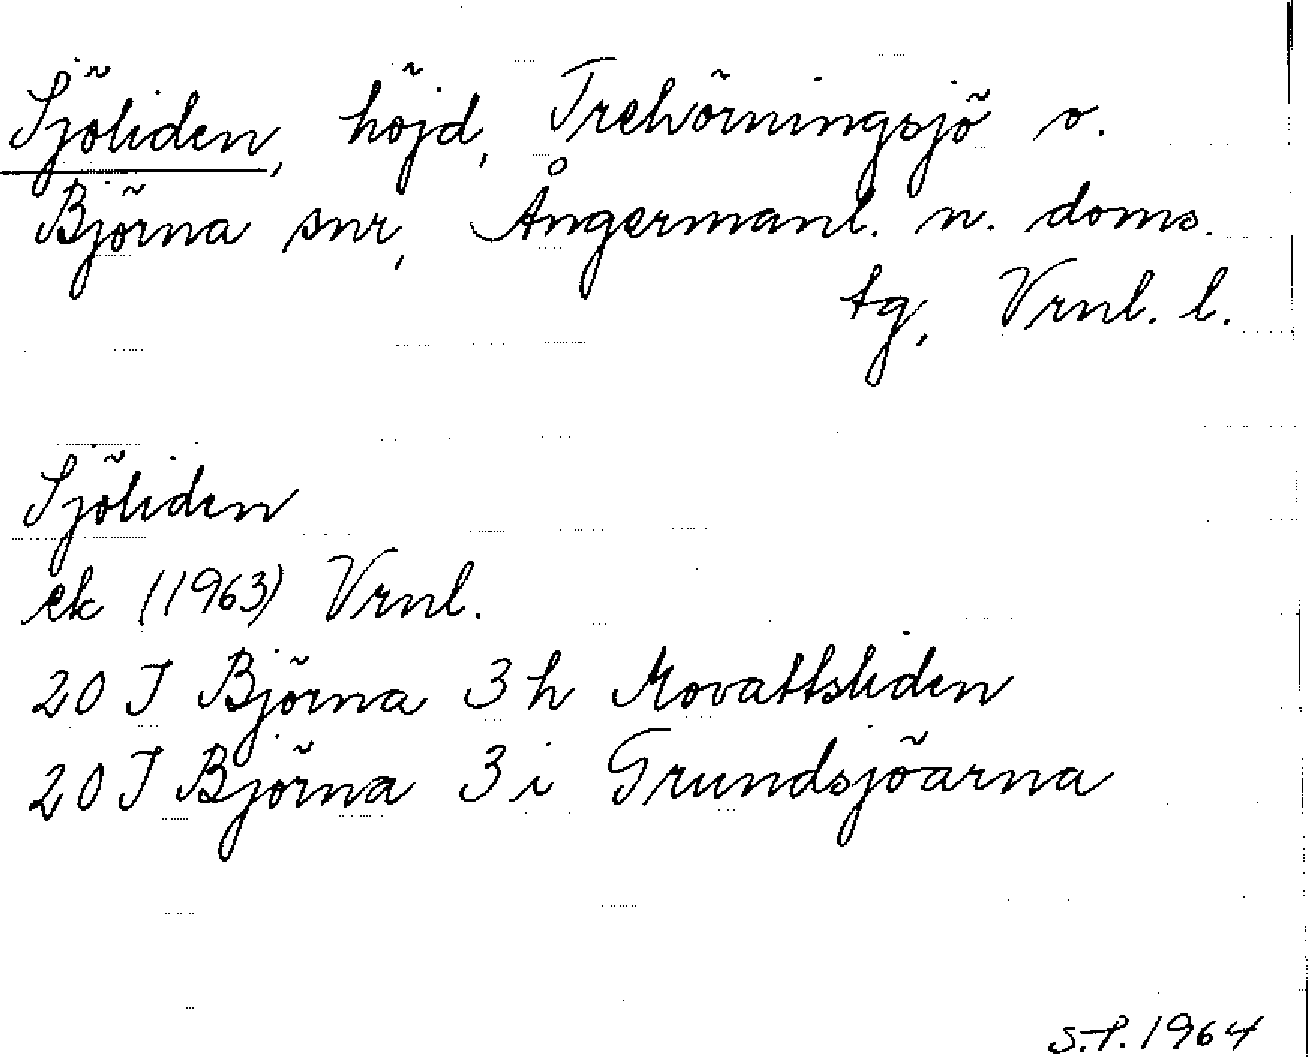 Sjöliden, höjd, Trehörningsjö o.
Björna snr, Ångermanl. n. doms.
tg, Vrnl. l.
Sjöliden
ek (1963) Vrnl.
20 J Björna 3 h Movattsliden
20 J Björna 3 i Grundsjöarna
S.P. 1964